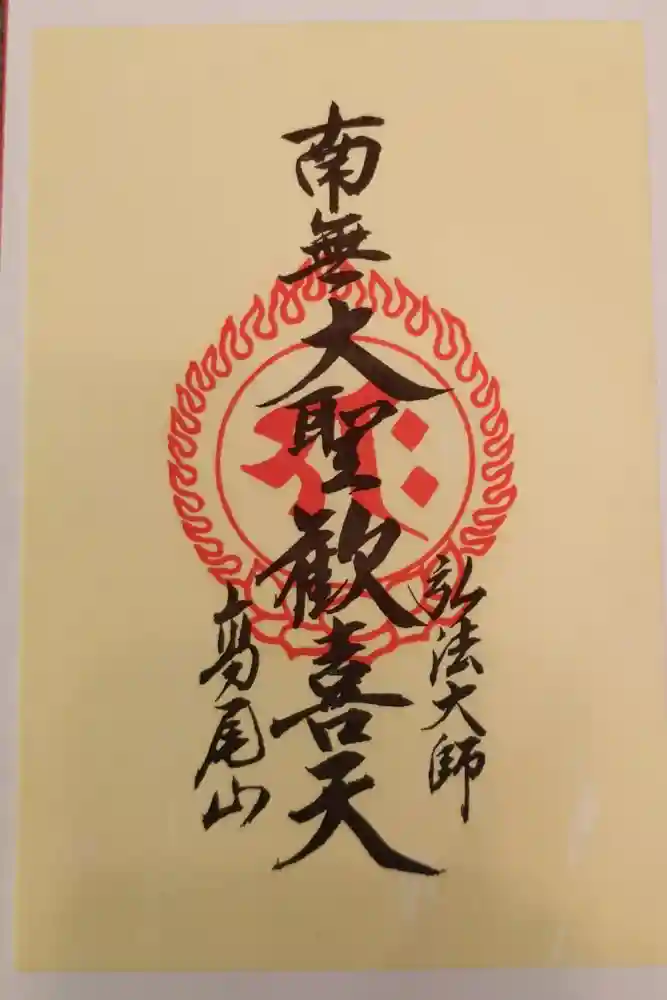 弘法大師
南無大聖歓喜天
高尾山